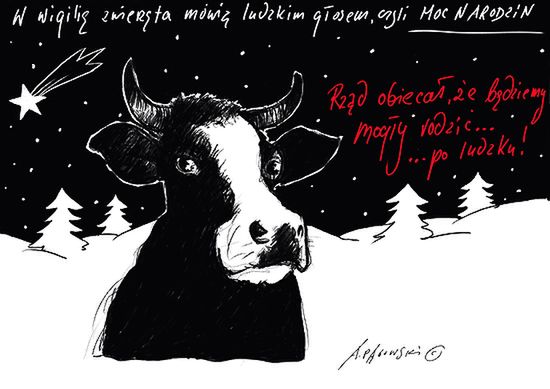 W WIGILIĘ ZWIERZĘTA MÓWIĄ LUDZKIM GŁOSEM, CZYLI MOC NARODZIN
Rząd obiecał, że będziemy
mogły rodzić...
...po ludzku!